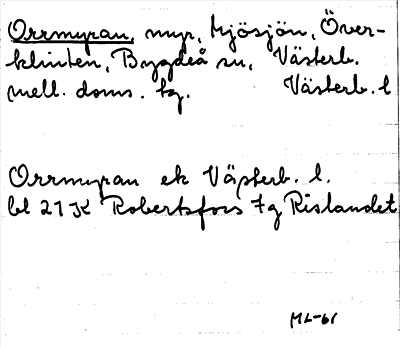 Orrmyran, myr, Mjösjön, Över-
klinten, Bygdeå sn, Västerb.
mell. doms. tg. Västerb. l
Orrmyran ek Västerb. l.
bl 21 K Robertsfors 7g Rislandet
ML-61